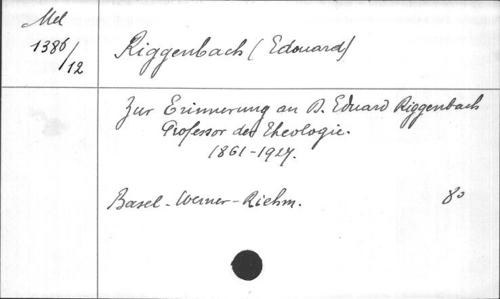 Mel
1386/12
Riggenbach (Edouard)
Zur Erinnerung an D. Eduard Riggenbach
Professor der Theologie.
1861-1927.
Basel - Werner-Riehm. 8o